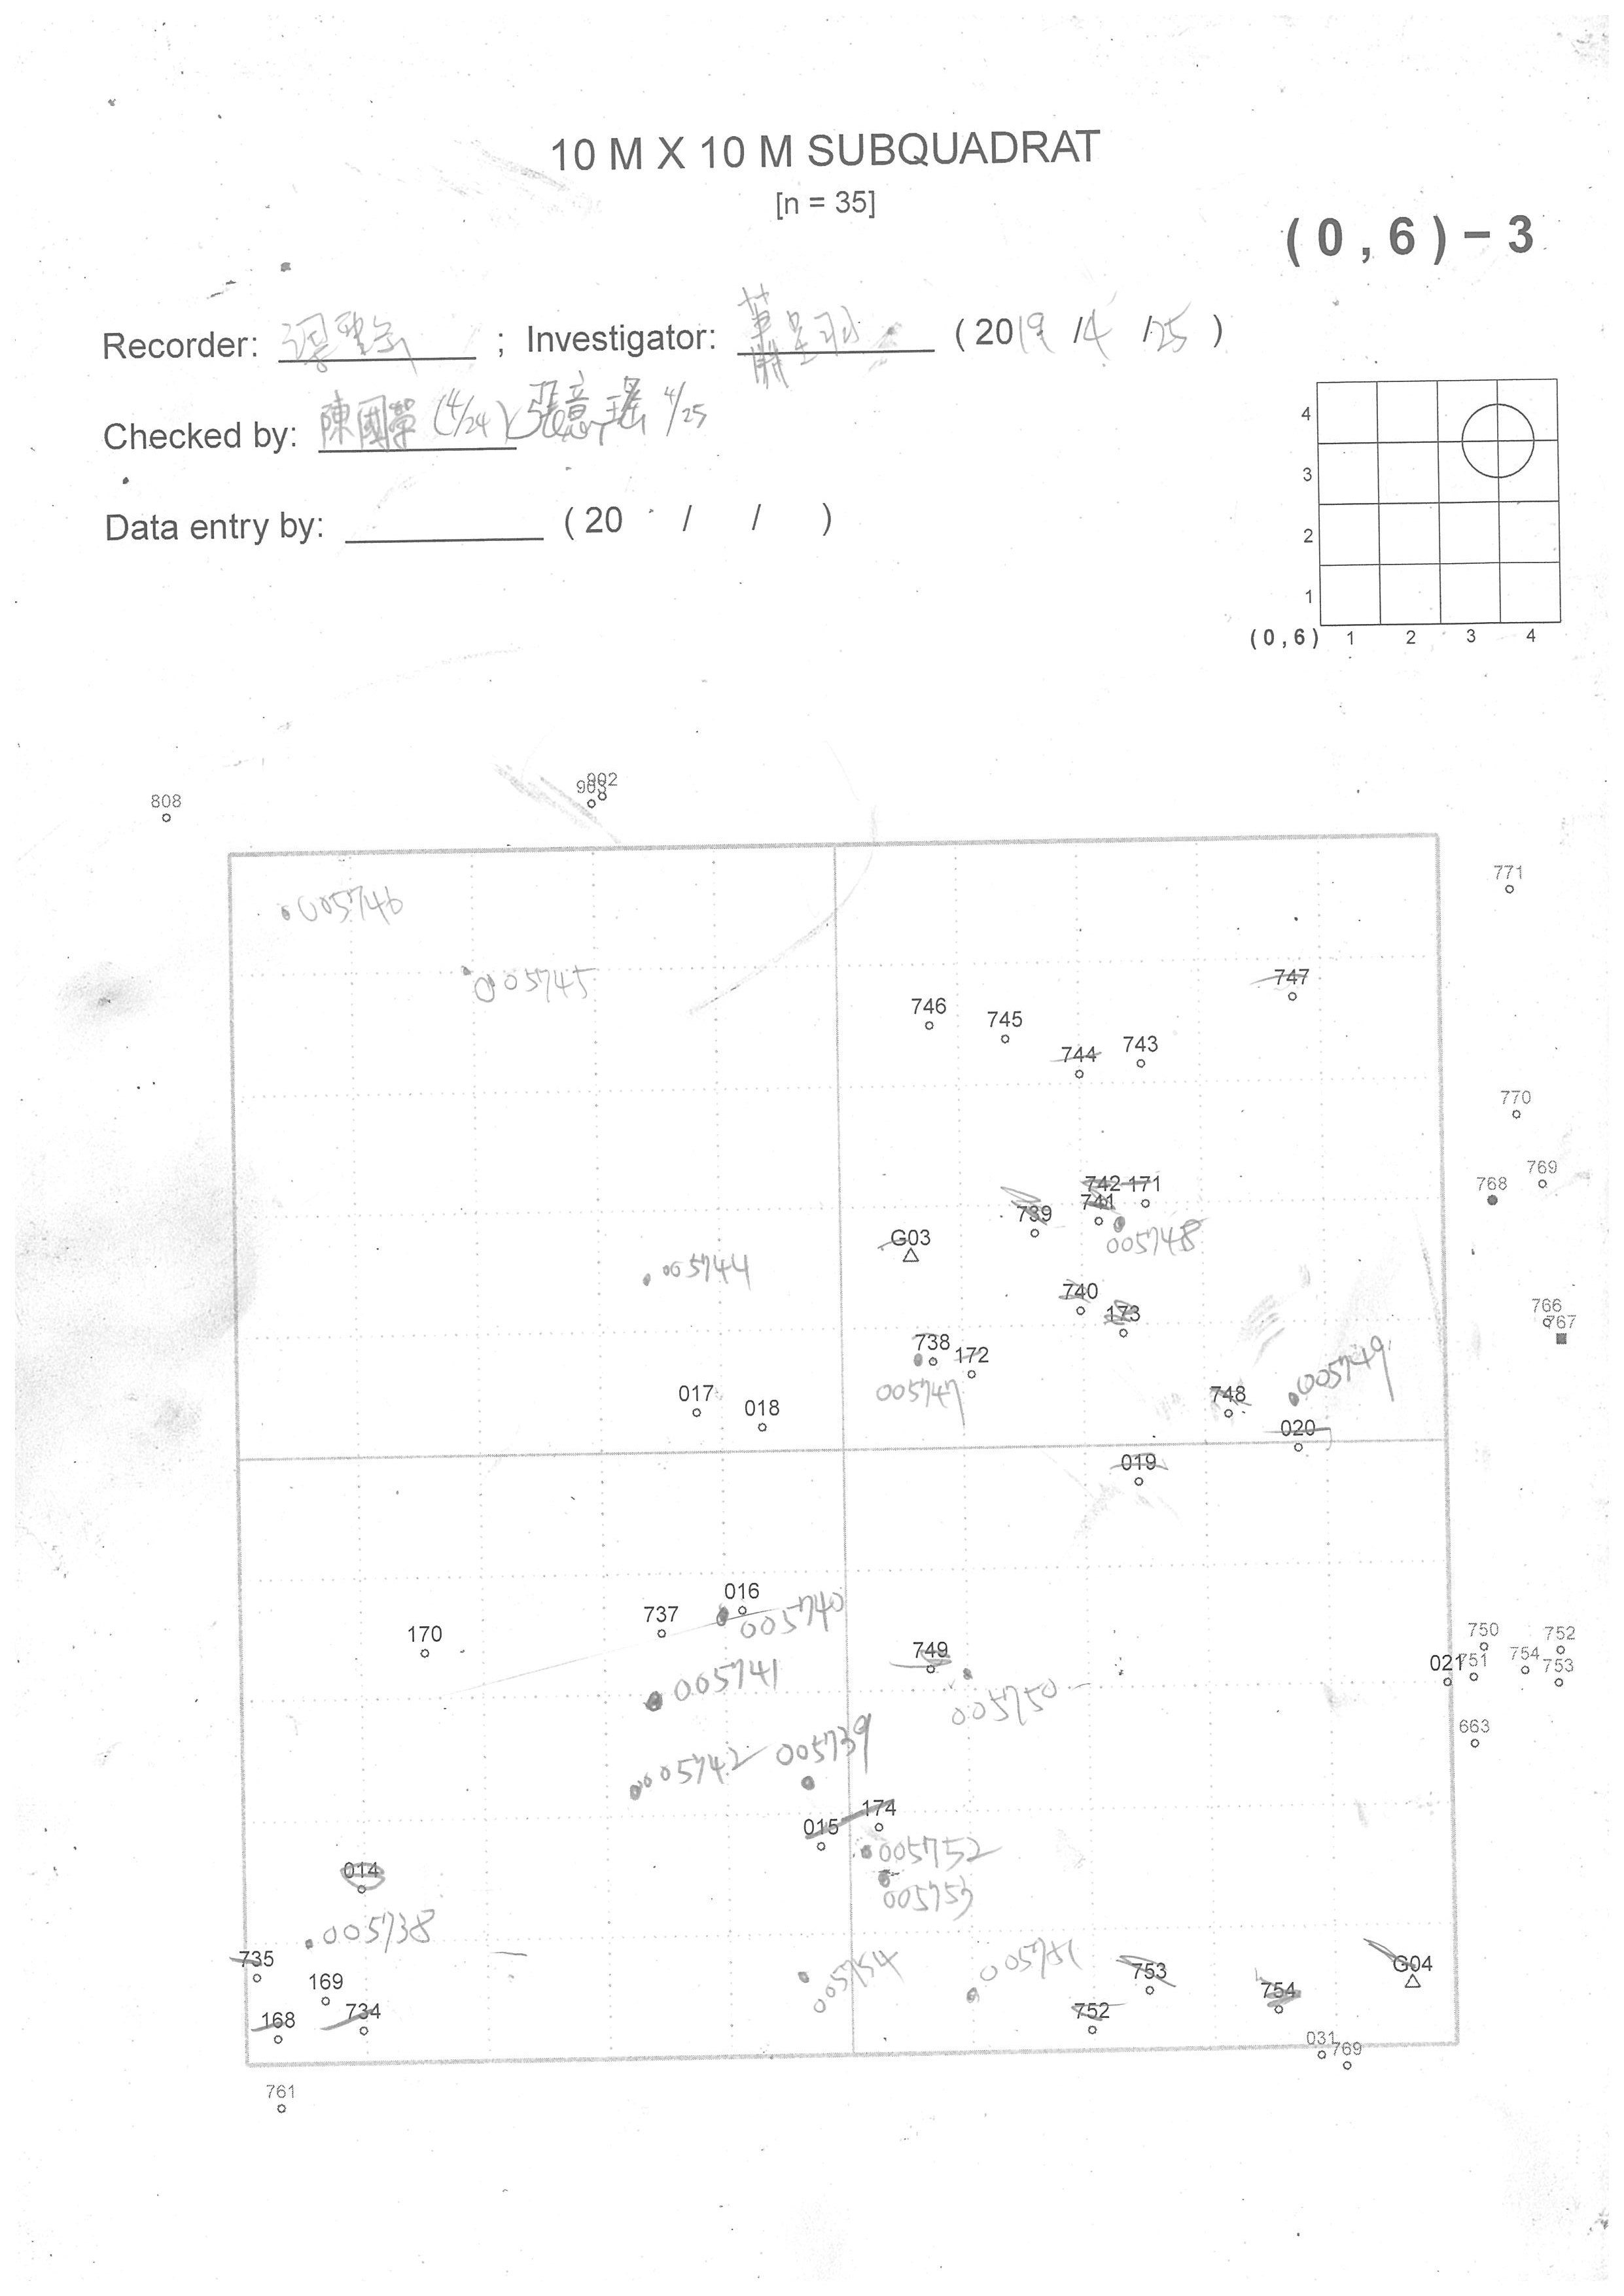 10 M X 10 M SUBQUADRAT
[n = 35]
(0,6)-3
Recorder: ; Investigator: (2019/4/25)
Checked by: 陳國 (4/24) 張意 4/25
Data entry by: (20 / / )
4
3
2
1
(0,6) 1 2 3 4
902
903
808
771
005746
747
005745
746
745
744 743
770
769
742 171
768
741
739
005748
G03
005744
740
766
173
767
738
172
005749
005747
748
017
018
020
019
016
737
005740
170
750 752
749
021 751 754 753
005741
005750
663
005739
005742
174
015
005752
014
005753
005738
735
005751
753
G04
005754
169
754
168 734
752
031
769
761